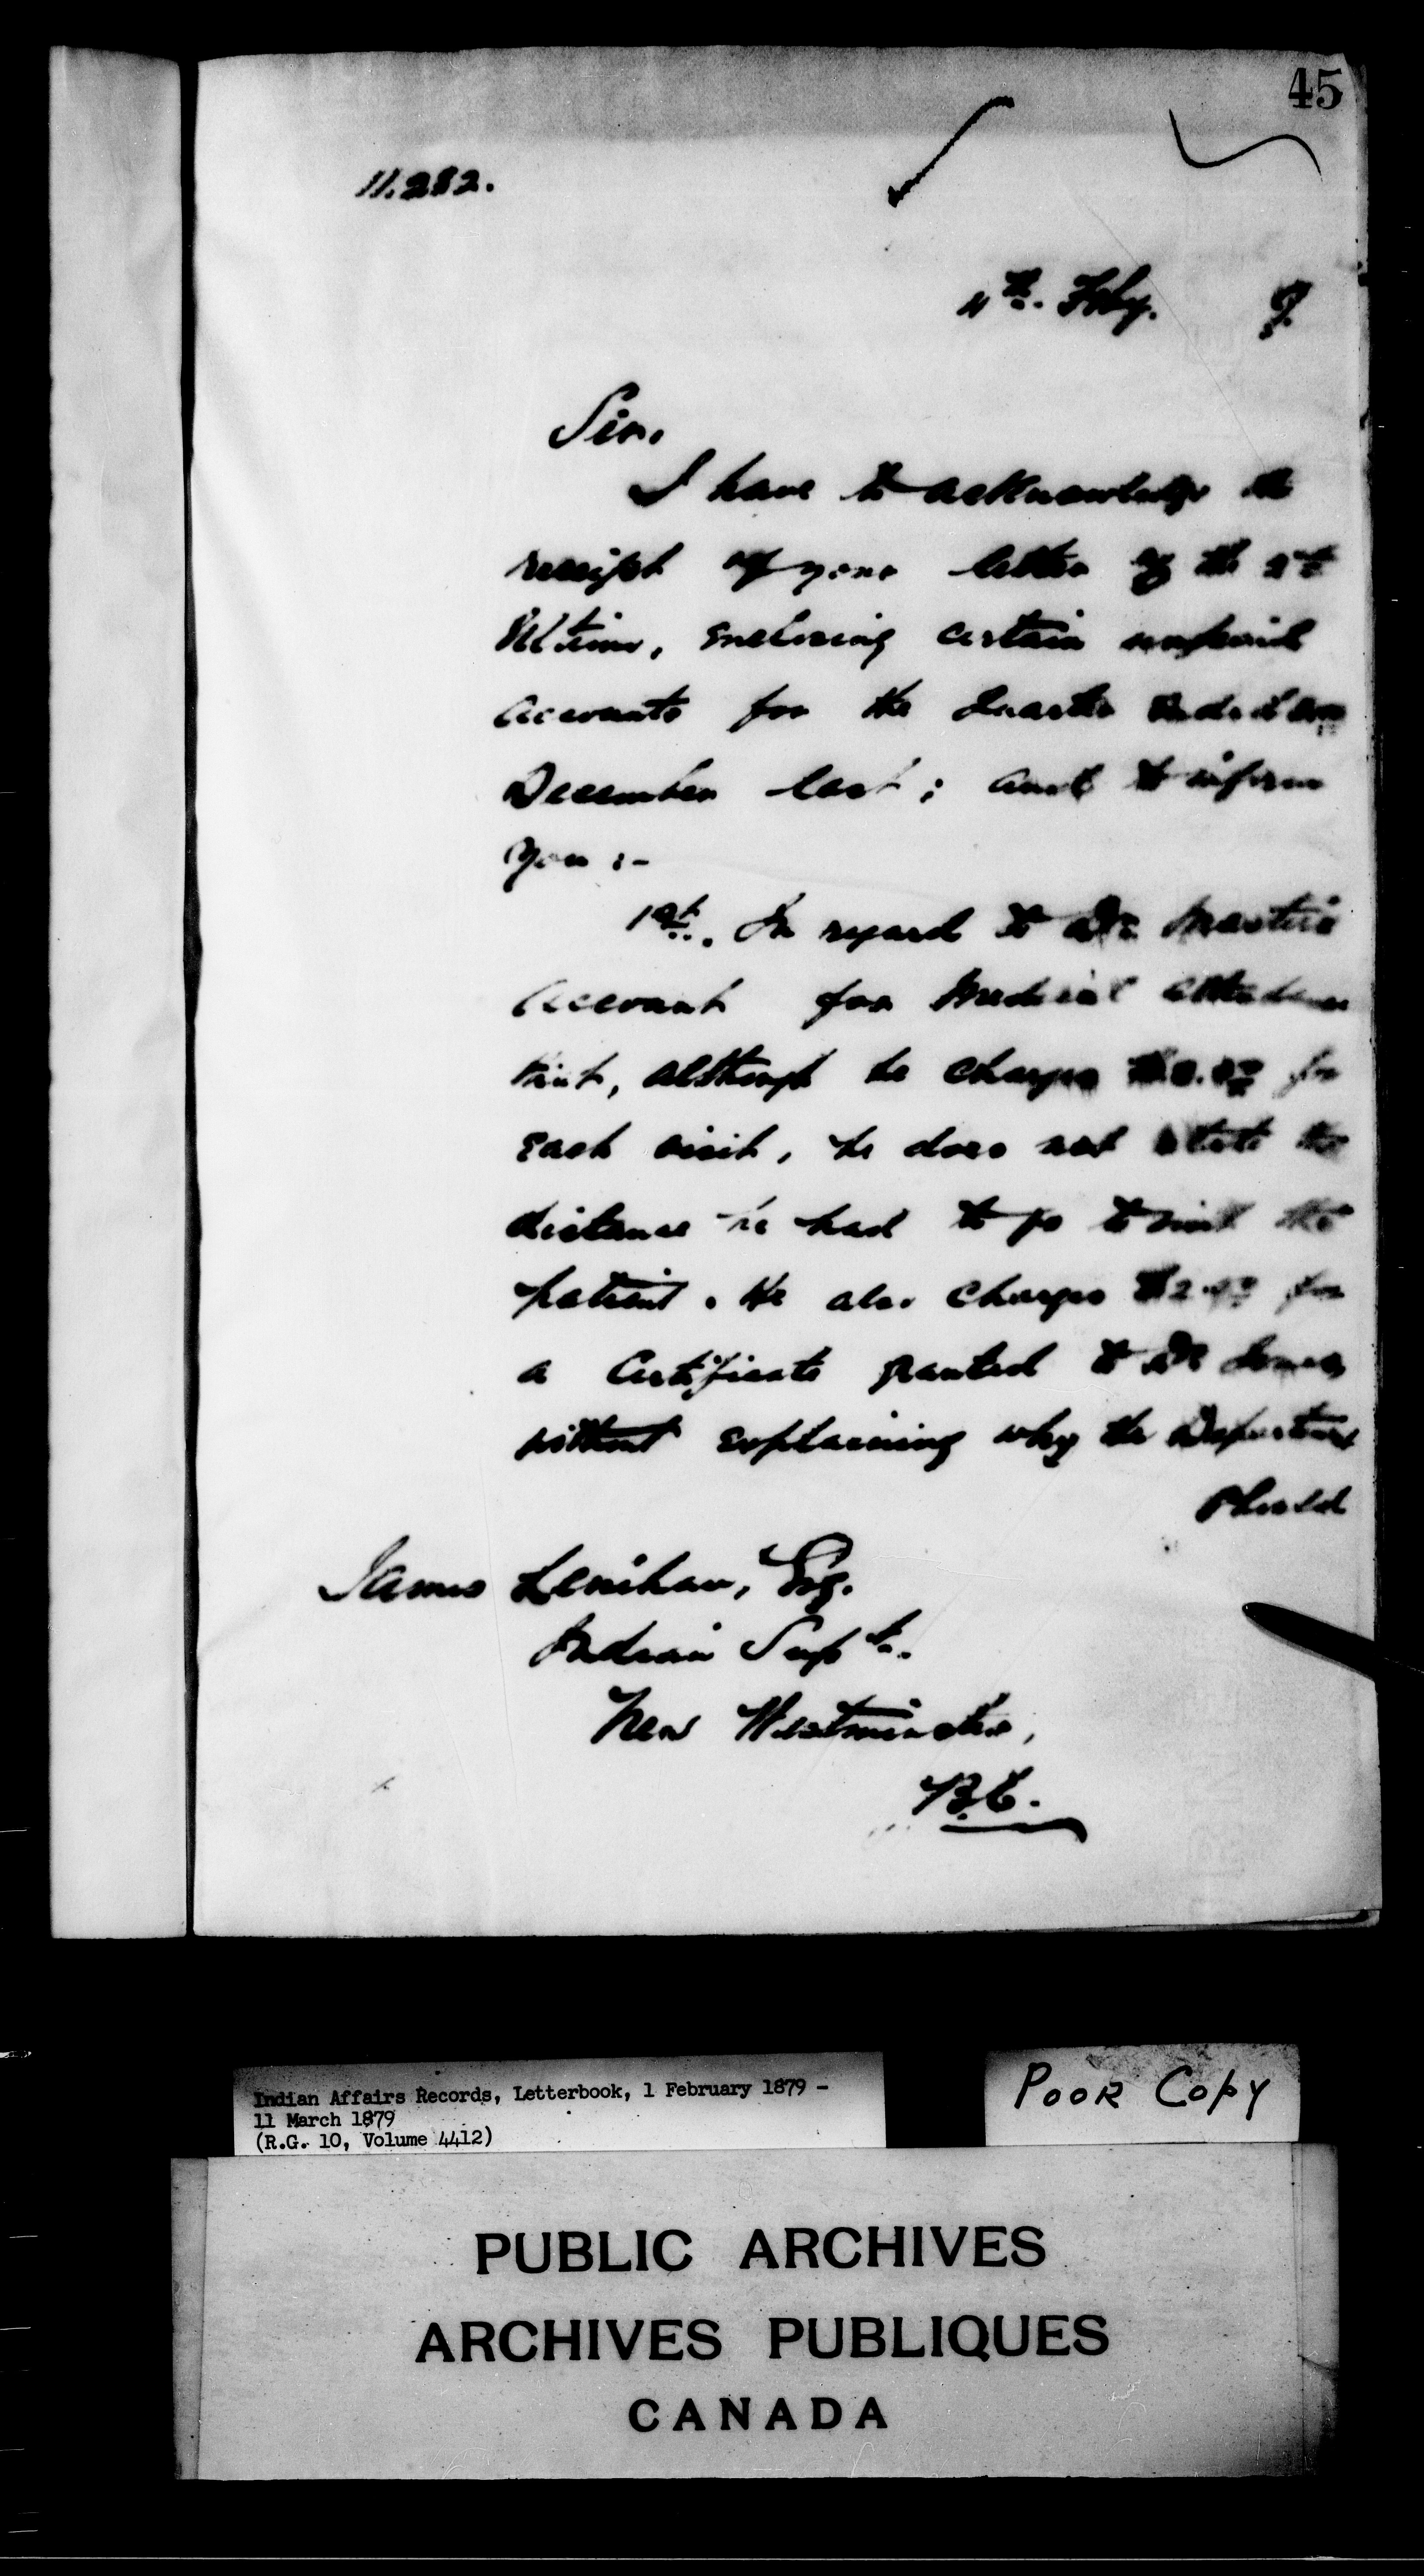 45
11.282.
th. Feby. 9.
Sir.
I have to acknowledge the
receipt of your letter of the
Ultimo, enclosing certain unpaid
Accounts for the Quarter ended
December last; and to inform
you :-
1st. In regard to Dr.
Account for Medical attendance
that, although he charges for
each visit, he does not state the
distance he had to go to visit the
patient. He also charges $2.00 for
a Certificate granted to
without explaining why the Department
should
James Lenihan, Esq.
Indian Supt.
New Westminster,
B.C.
Indian Affairs Records, Letterbook, 1 February 1879 -
11 March 1879
(R.G. 10, Volume 4412)
POOR COPY
PUBLIC ARCHIVES
ARCHIVES PUBLIQUES
CANADA